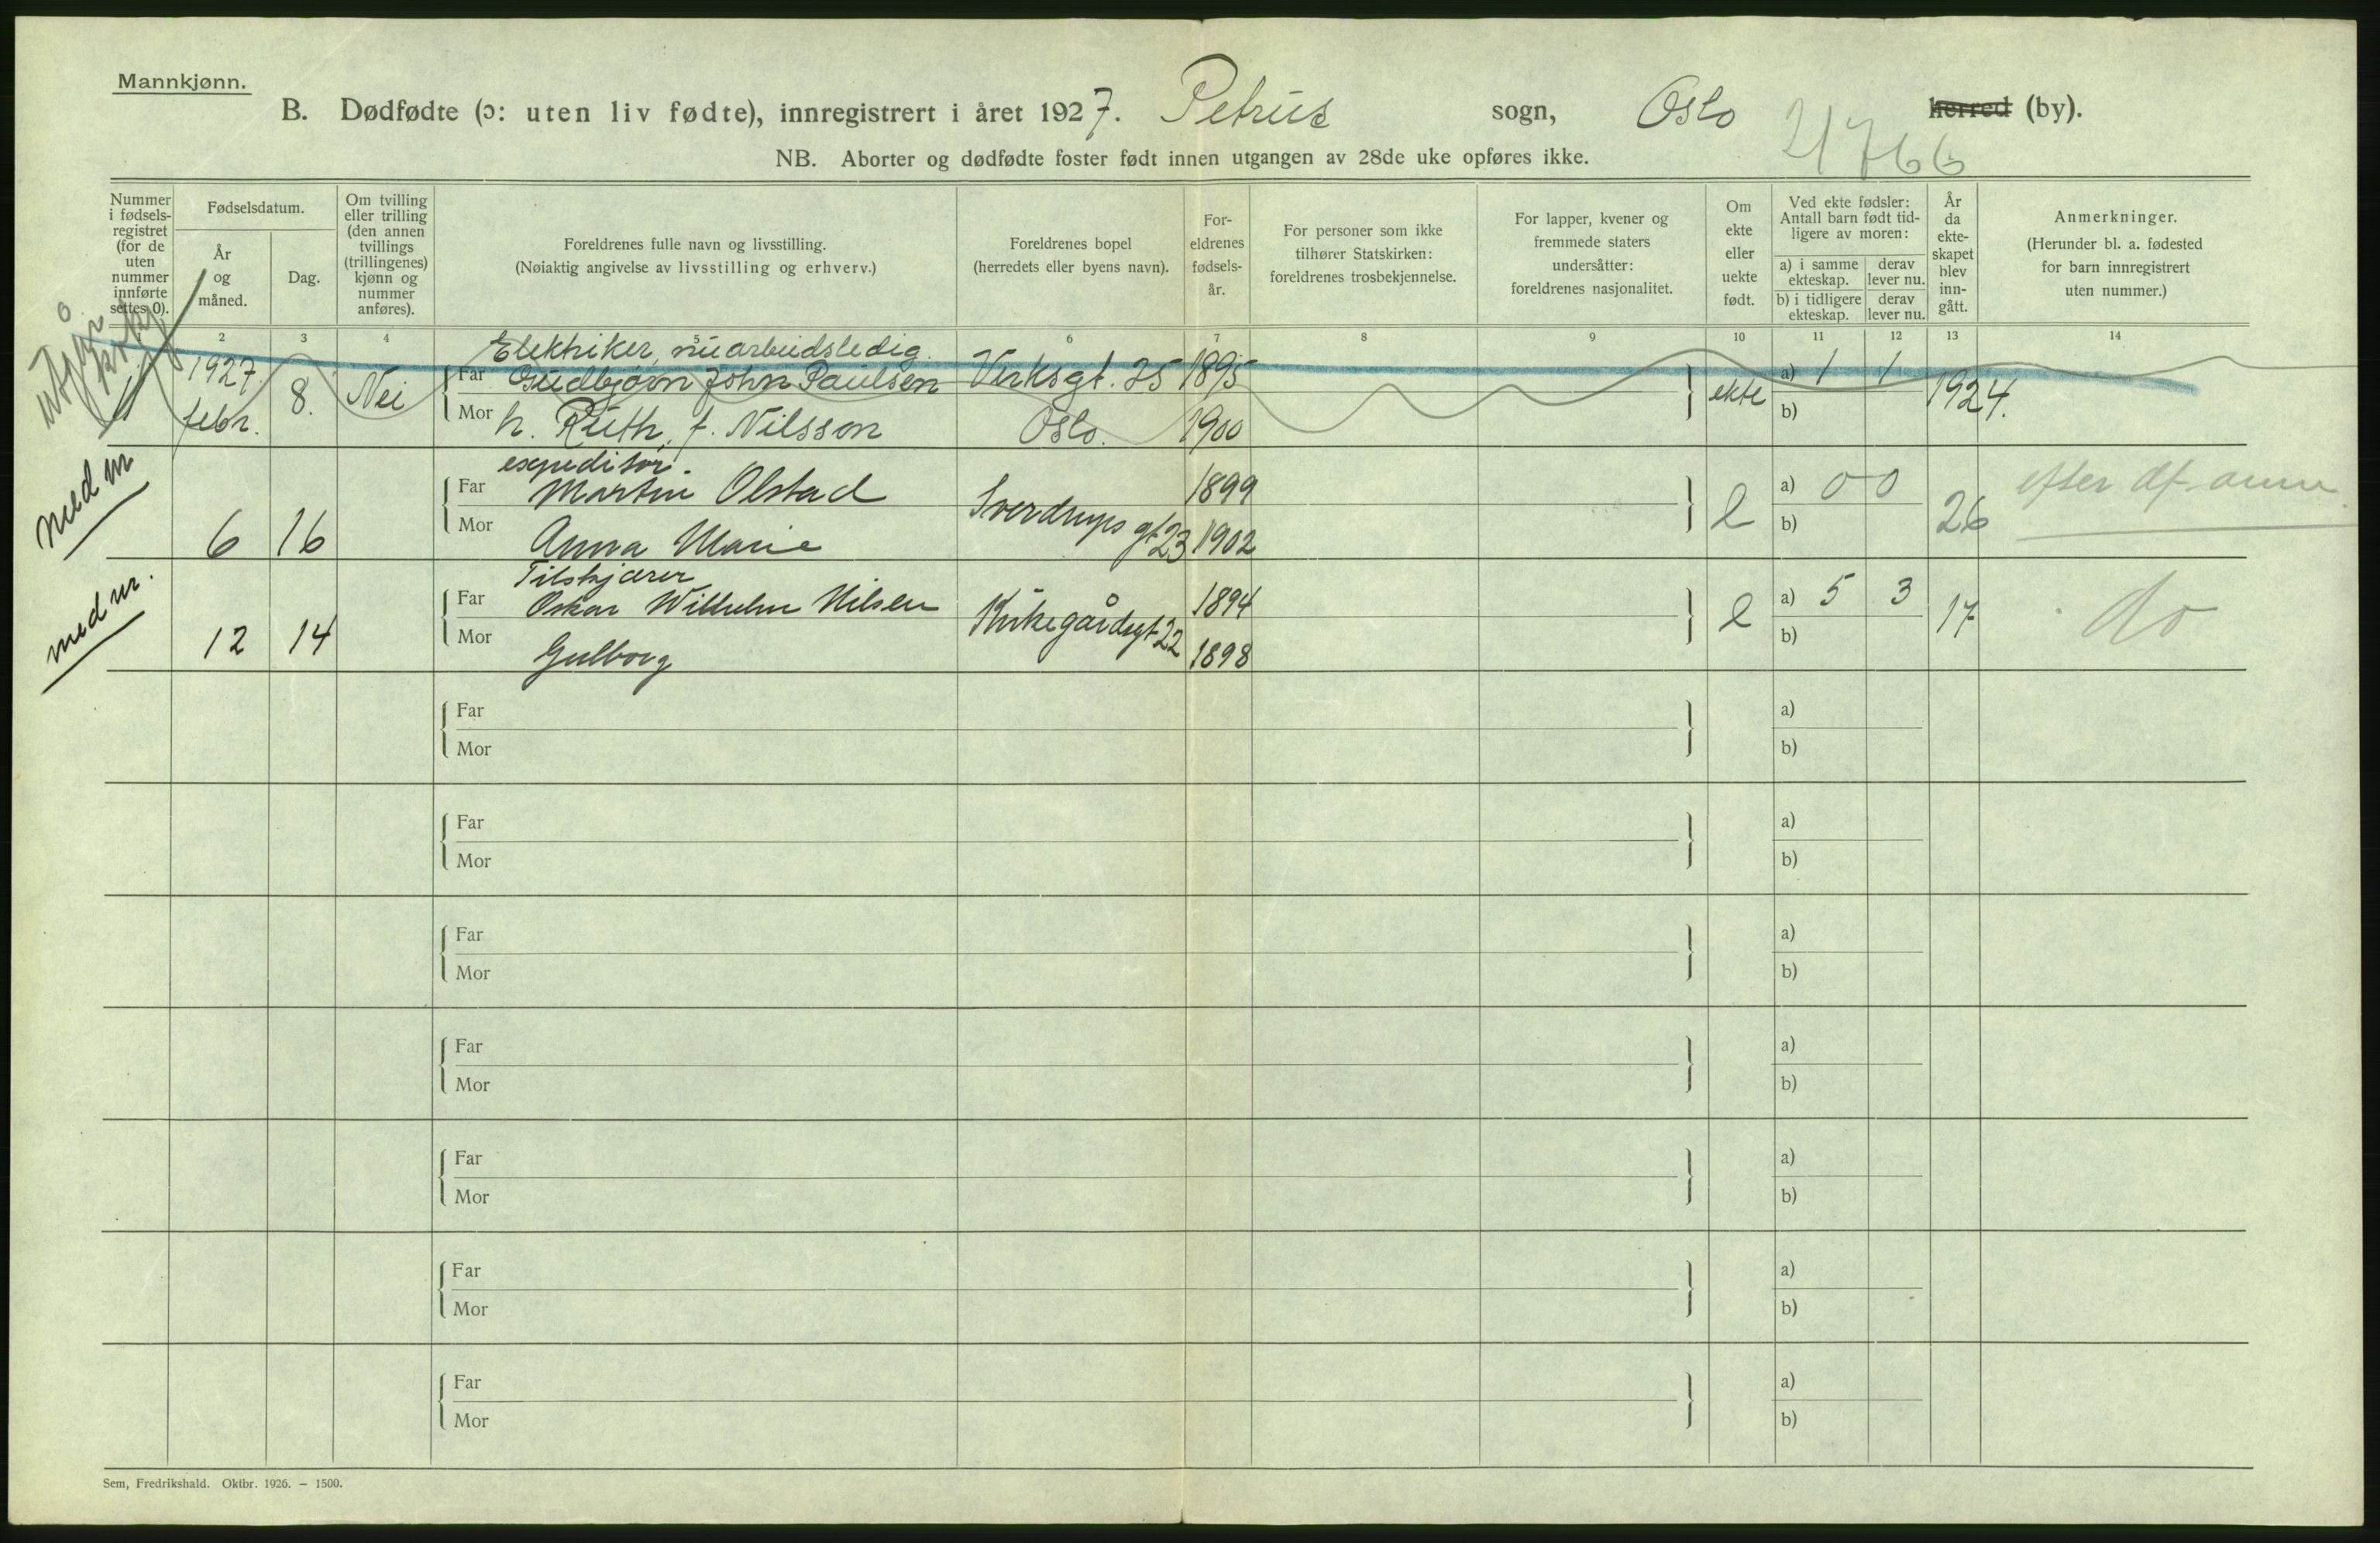 Mannkjønn.
B. Dødfødte (ɔ: uten liv fødte), innregistrert i året 1927. Petrus sogn, Oslo herred (by).
21766
NB. Aborter og dødfødte foster født innen utgangen av 28de uke opføres ikke.
Nummer i fødsels-registret (for de uten nummer innførte settes 0).
Fødselsdatum.
År og måned.
Dag.
Om tvilling eller trilling (den annen tvillings (trillingenes) kjønn og nummer anføres).
Foreldrenes fulle navn og livsstilling.
(Nøiaktig angivelse av livsstilling og erhverv.)
Foreldrenes bopel
(herredets eller byens navn).
For-eldrenes fødsels-år.
For personer som ikke tilhører Statskirken: foreldrenes trosbekjennelse.
For lapper, kvener og fremmede staters undersåtter: foreldrenes nasjonalitet.
Om ekte eller uekte født.
Ved ekte fødsler: Antall barn født tid-ligere av moren:
a) i samme ekteskap. derav lever nu.
b) i tidligere ekteskap. derav lever nu.
År da ekte-skapet blev inn-gått.
Anmerkninger.
(Herunder bl. a. fødested for barn innregistrert uten nummer.)
2 3 4 6 7 8 9 10 11 12 13 14
Elektriker, nu arbeidsledig.
1 1927 febr. 8. Nei Far Gudbjørn John Paulsen Verksgt. 25 1895 ekte a) 1 1 1924.
Mor h. Ruth, f. Nilsson Oslo. 1900 b)
expeditør.
med nr
6 16 Far Martin Olstad Sverdrups gt 23 1899 e a) 0 0 26 efter df. anm
Mor Anna Marie 1902 b)
Tilskjærer
med nr.
12 14 Far Oskar Wilhelm Nilsen Kirkegårdsgt 22 1894 e a) 5 3 17 do
Mor Gulborg 1898 b)
Far a)
Mor b)
Far a)
Mor b)
Far a)
Mor b)
Far a)
Mor b)
Far a)
Mor b)
Far a)
Mor b)
Far a)
Mor b)
Sem, Fredrikshald. Oktbr. 1926. — 1500.